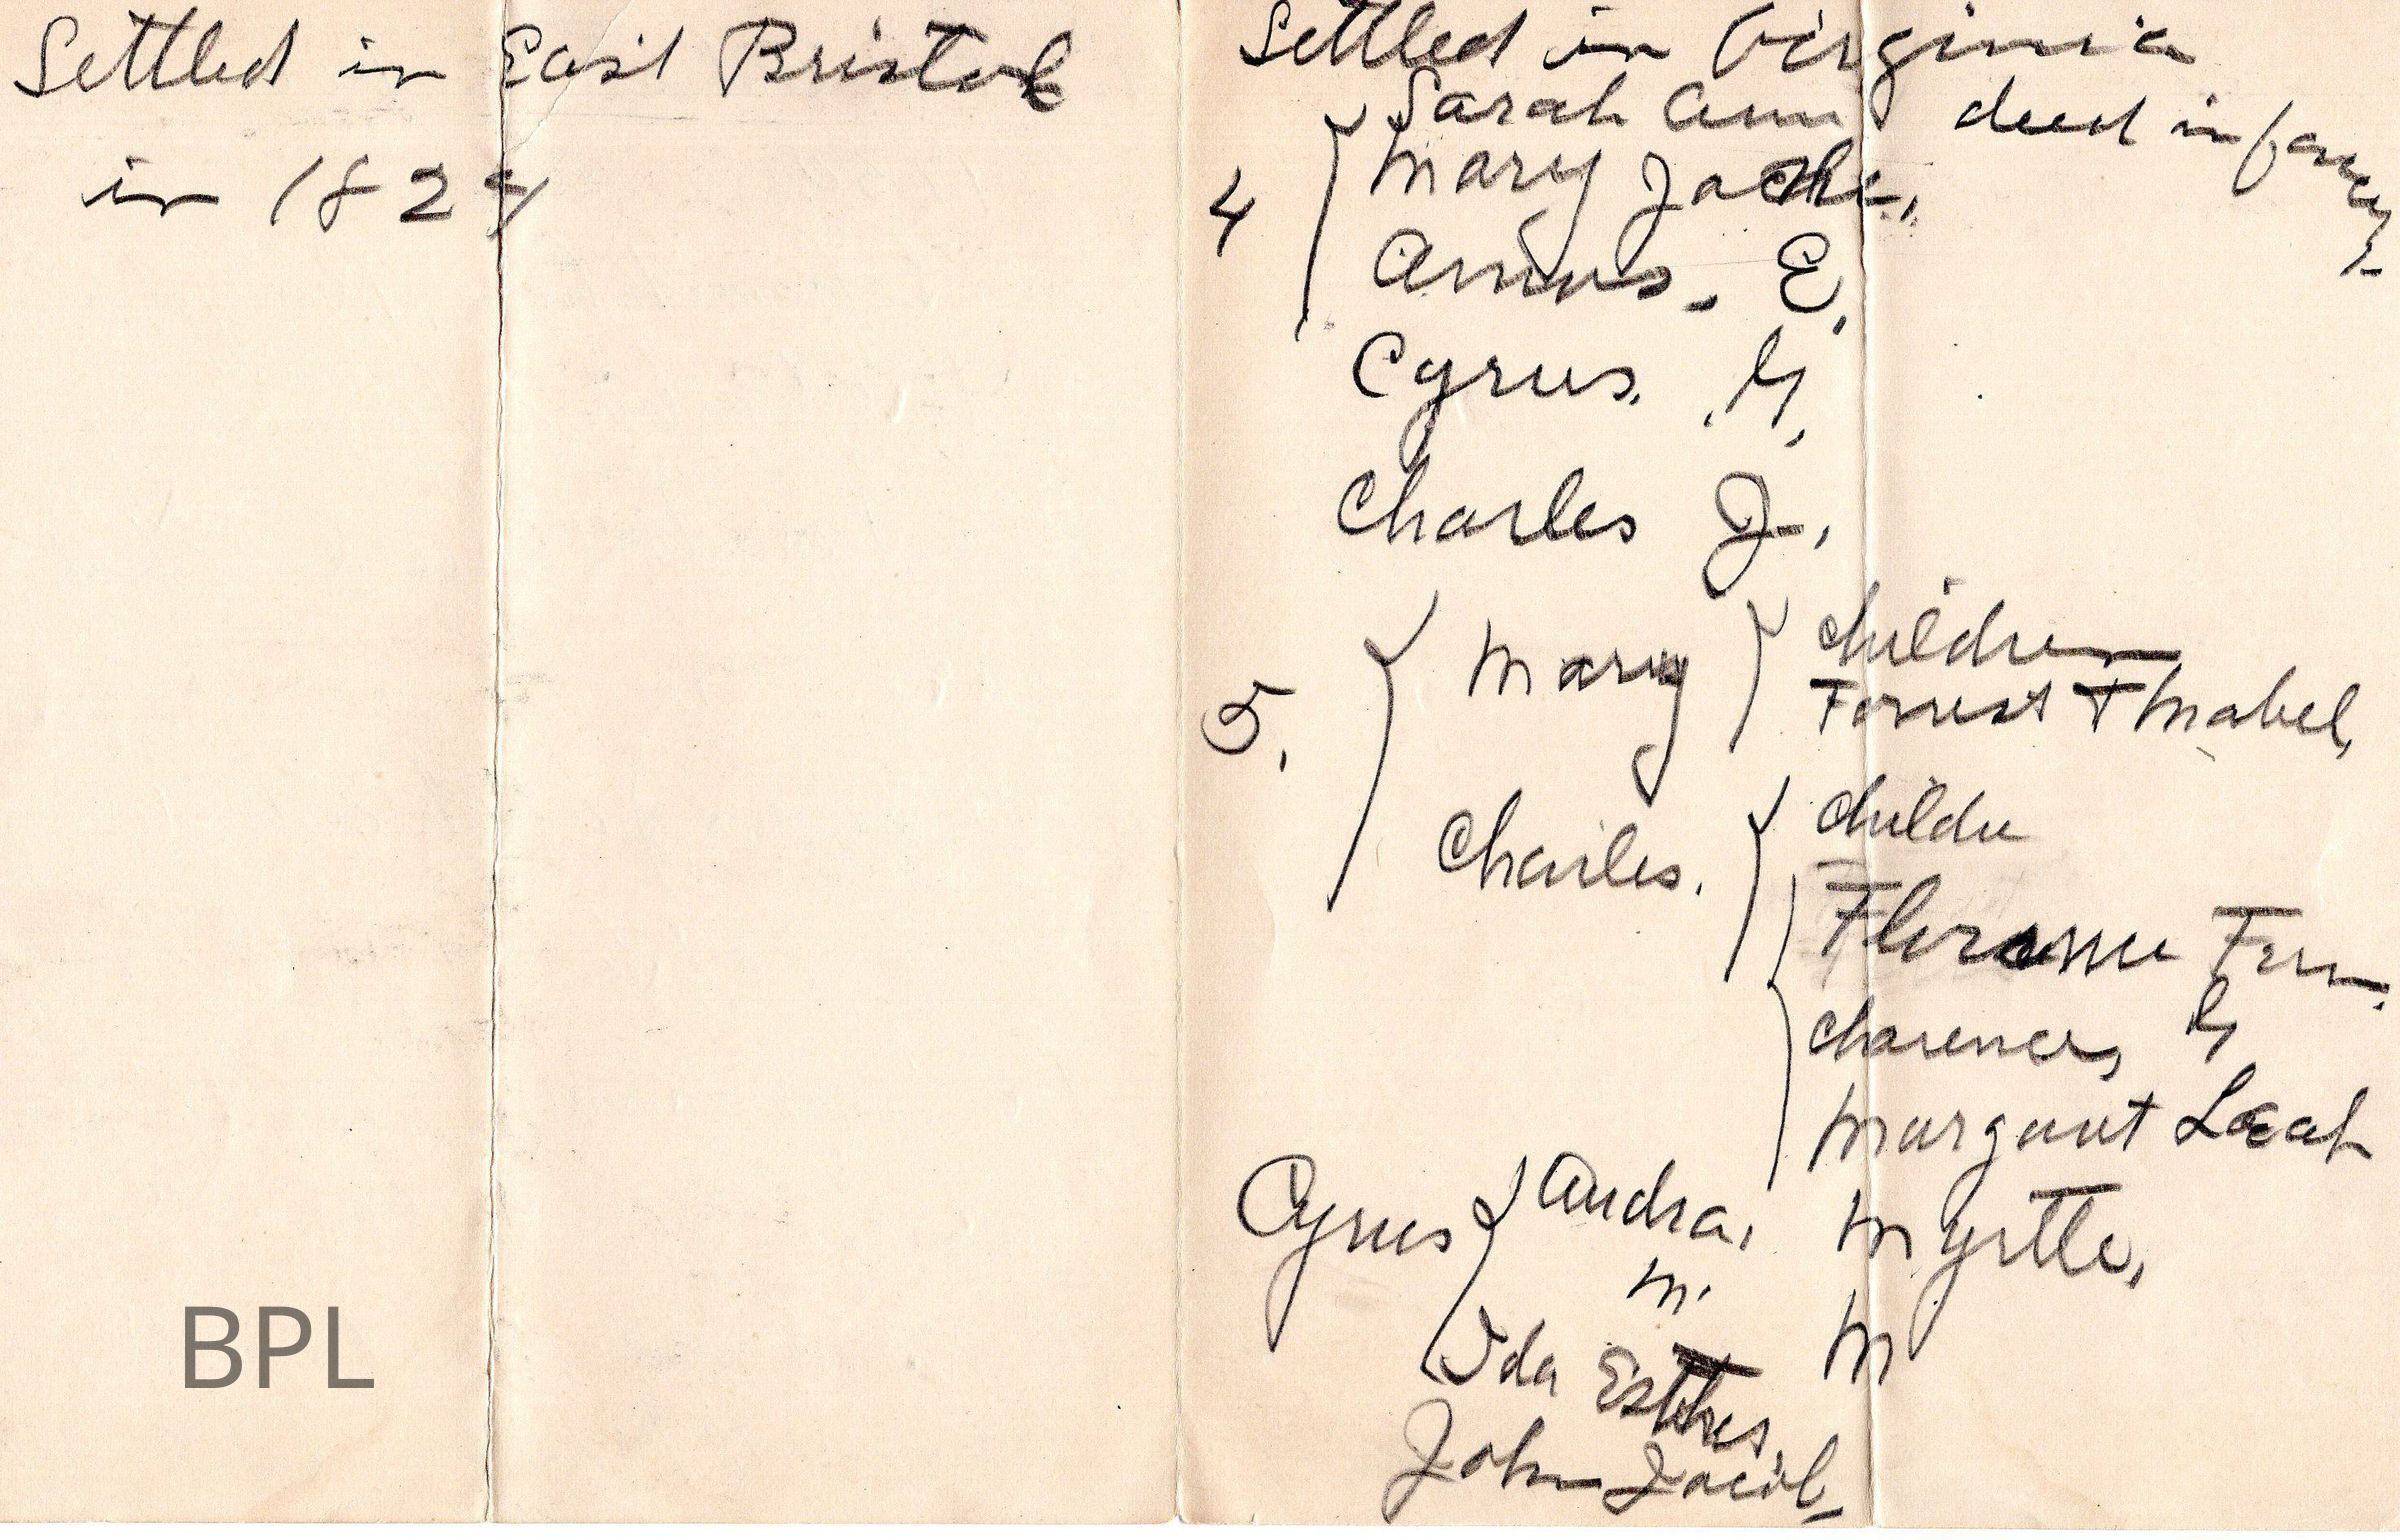 Settled in East Bristol
in 182
BPL
Settled in Virginia
Sarah Ann died infancy.
4 Mary
Amos. E.
Cyrus. G.
Charles J.
5. Mary children
Forrest + Mabel,
Charles. childre
Florence Fern.
Charence, G
Margaret Leah
Cyrus Andra, Myrtle,
M. M
Ida Esther
John Jacob